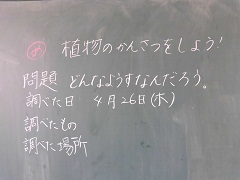 め 植物のかんさつをしよう!
問題 どんなようすなんだろう。
調べた日 4月26日(木)
調べたもの
調べた場所